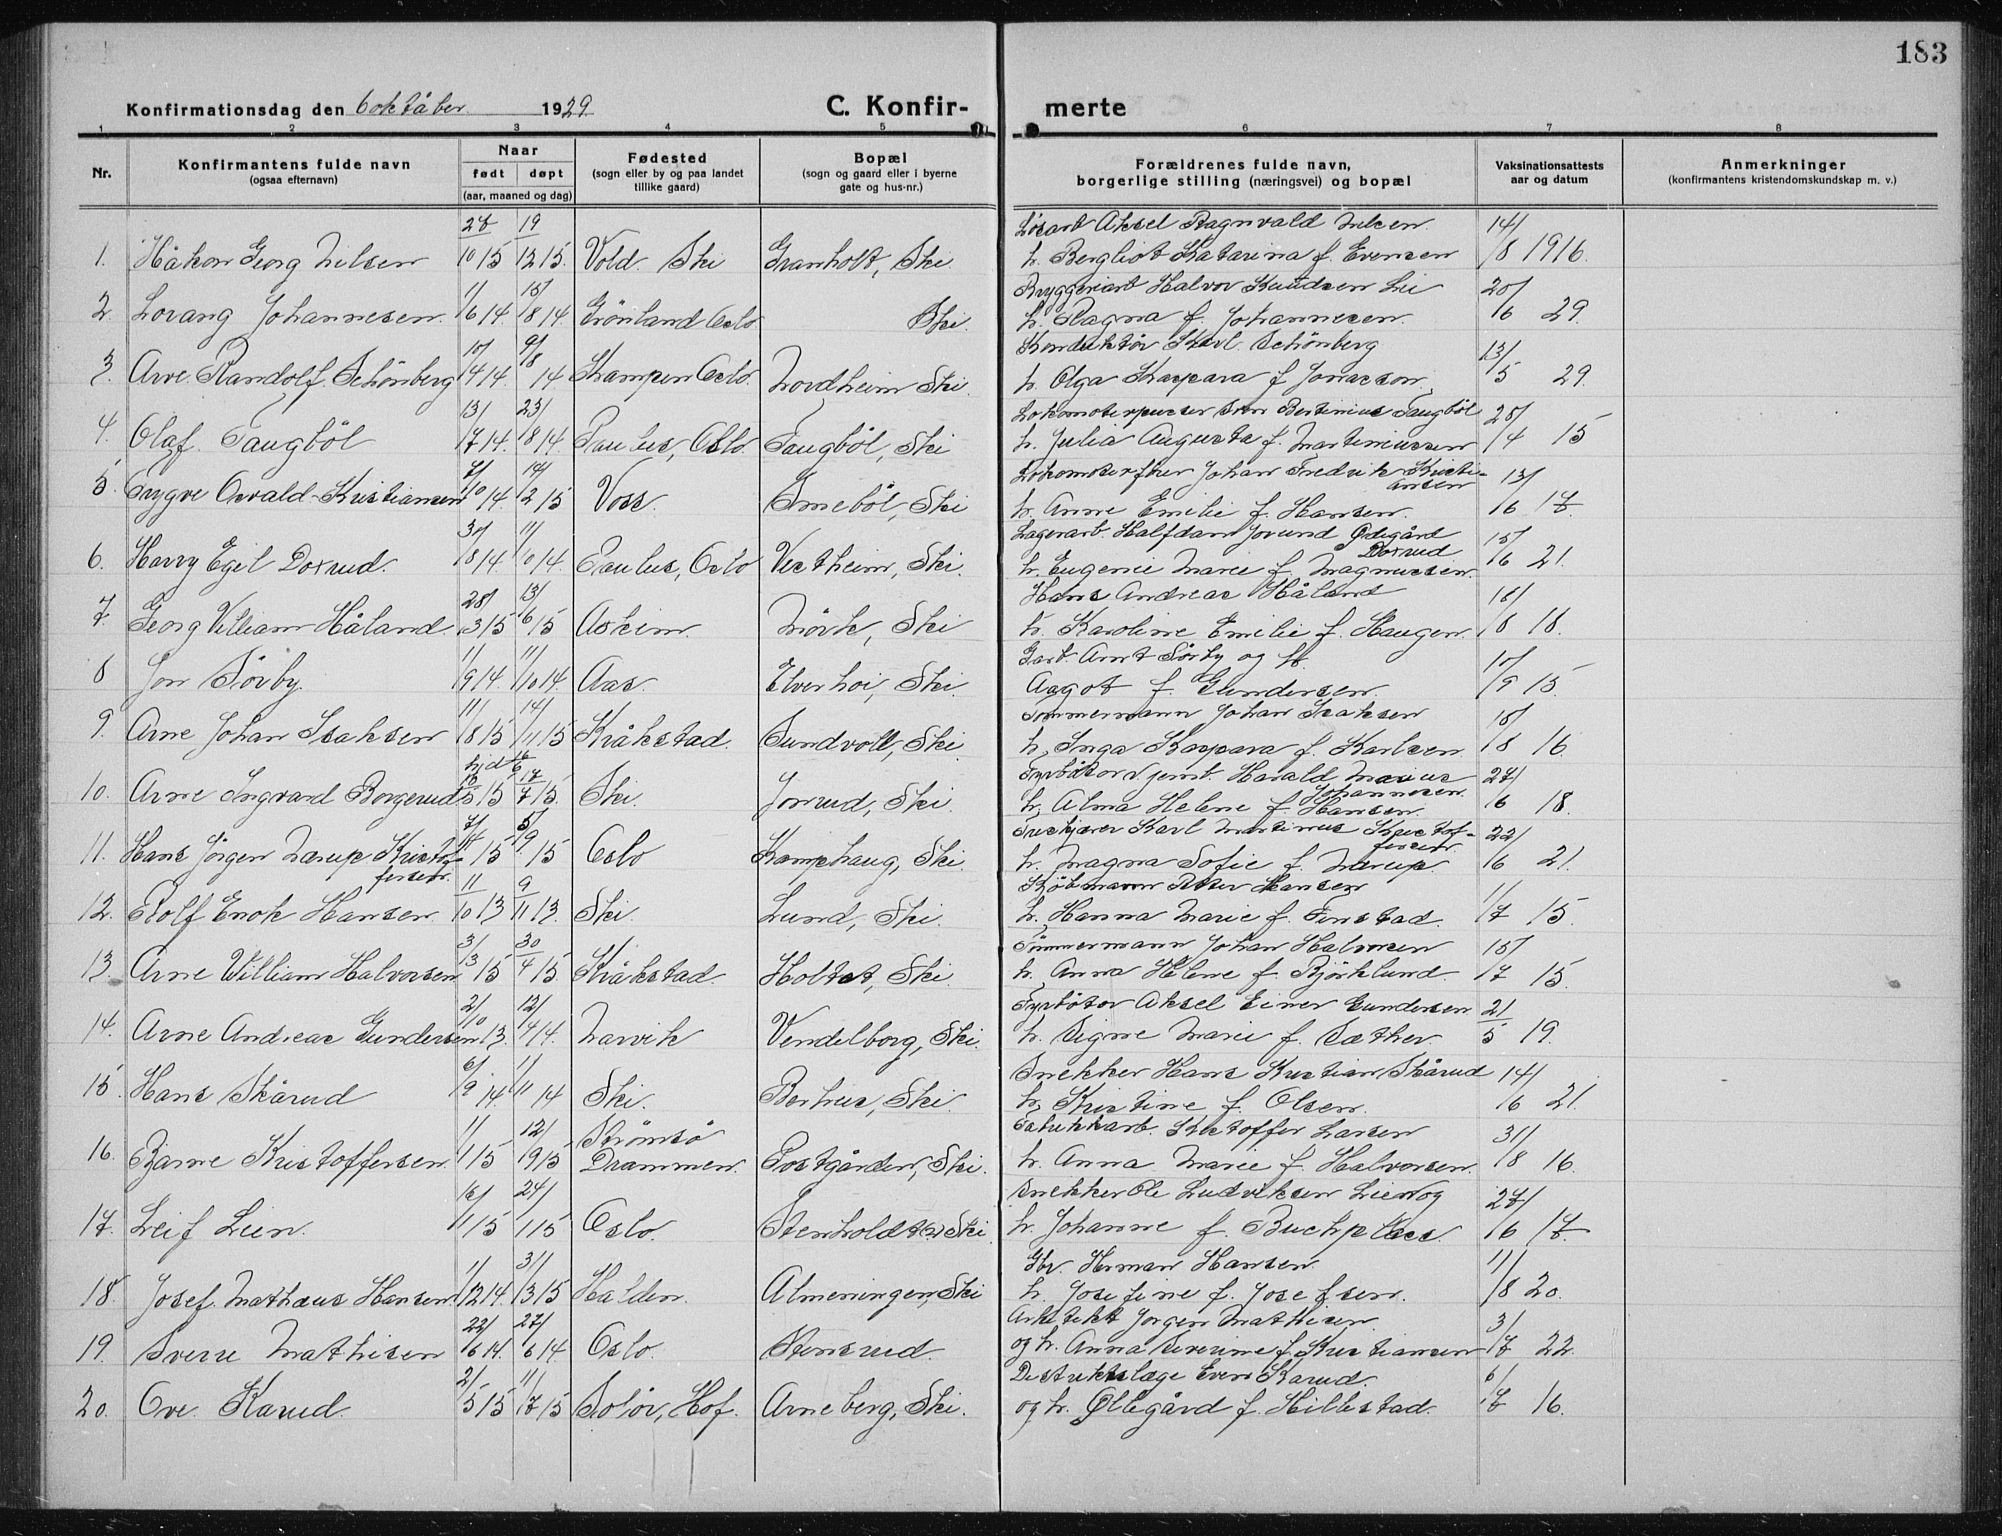 183
Konfirmationsdag den 6 oktåber 1929
C. Konfir-
merte
1 2 3 4 5 6 7 8
Nr.
Konfirmantens fulde navn
(ogsaa efternavn)
Naar
født døpt
(aar, maaned og dag)
Fødested
(sogn eller by og paa landet
tillike gaard)
Bopæl
(sogn og gaard eller i byerne
gate og hus-nr.)
Forældrenes fulde navn,
borgerlige stilling (næringsvei) og bopæl
Vaksinationsattests
aar og datum
Anmerkninger
(konfirmantens kristendomskundskap m. v.)
Løsarb Aksel Ragnvald Nilsen
1. Håkon Georg Nilsen 28/10 15 19/12 15. Vold. Ski Granholt, Ski h. Bergliot Katarina f. Evensen 14/8 1916.
Bryggeriarb Halvor Knudsen Lie
2. Lorang Johannesen. 11/6 14 15/8 14. Grönland Oslo Ski. h. Ragna f. Johannesen. 20/6 29.
Konduktør Karl Schönberg
3. Arve Randolf Schönberg 10/4 14. 9/8 14 Kampen Oslo. Nordheim Ski h. Olga Kaspara f Jonasson. 13/5 29.
Bertinius Taugböl
4. Olaf Taugböl 13/7 14. 23/8 14. Paulus, Oslo. Taugböl, Ski h. Julia Augusta f. Martiniussen 20/4 15
Johan Fredrik Kristi-
ansen
5. Trygve Osvald Kristiansen 7/10 14 14/2 15 Voss. Smeböl, Ski h. Anne Emilie f. Hansen. 13/6 18.
Lagerarb. Halfdan Jorund Ødegård
Dorrud
6. Harry Egil Dorrud. 30/8 14. 11/10 14. Paulus, Oslo Vestheim, Ski. h. Eugenie Marie f. Magnussen. 15/6 21.
Hans Andreas Håland
7. Georg Villiam Håland. 28/3 15 13/6 15 Askim. Mörk, Ski h. Karoline Emilie f. Haugen. 18/8 18.
Garb. Arnt Sørby og h.
8 Jon Sörby. 1/9 14. 11/10 14. Aas. Elverhoi, Ski. Aagot f. Gundersen. 10/9 15.
Tømmermann Johan Isaksen
9. Arne Johan Isaksen 11/8 15 14/11 15 Kråkstad. Sundvoll, Ski h. Inga Kaspara f. Karlsen. 18/8 16
Harald Marius
Johannesen.
10. Arne Ingvard Borgerud 5 15 17/7 15. Ski. Jonrud, Ski. h. Alma Helene f. Hansen. 27/6 18.
Karl Martinus Kristof-
fersen
11. Hans Jörgen Narup Kristof-
fersen. 15 5/9 15 Oslo Kamphaug, Ski. h. Magna Sofie f. Narup. 22/6 21.
Köbmann Peter Hansen
12. Rolf Enok Hansen. 11/10 13 9/11 13. Ski. Lund, Ski. h. Hanna Marie f. Finstad. 1/7 15.
Tömmermann Johan Halvorsen
13. Arne William Halvorsen 3/3 15 30/4 15 Kråkstad. Holtet, Ski. h. Anna Helene f. Björklund. 15/7 15.
Fyrböter Aksel Einer Gundersen
14. Arne Andreas Gundersen 2/10 13. 12/4 14. Narvik Vendelborg, Ski. h. Signe Marie f. Sæther. 21/5 19.
Snekker Hans Kristian Skårud
15. Hans Skårud 6/9 14. 1/11 14 Ski. Berhus, Ski. h. Kristine f. Olsen. 14/6 21.
Fabrikkarb. Kristoffer Larsen
16. Bjarne Kristoffersen. 1/1 15 12/9 15 Strömsö
Drammen. Postgården, Ski. h. Anna Marie f. Halvorsen. 31/8 16.
Snekker Ole Ludviksen Lien og
17. Leif Lien. 16/1 15 24/1 15 Oslo. Stenholdt Ski. h. Johanne f. Buchplass. 27/6 18.
Gbr. Herman Hansen
18. Josef Mathæus Hansen. 1/12 14. 31/3 15 Halden. Almeningen, Ski h. Josefine f. Josefsen. 11/8 20.
Arkitekt Jorgen Mathisen.
19. Sverre Mathisen 22/6 14. 27/6 14 Oslo. Stensrud. og h. Anna Severine f. Kristiansen 3/7 22.
Distriktslæge Even Karud.
20. Ove Karud. 2/5 15 11/7 15 Solör, Hof. Arneberg, Ski. og h. Øllegård f. Hillestad. 6/8 16.